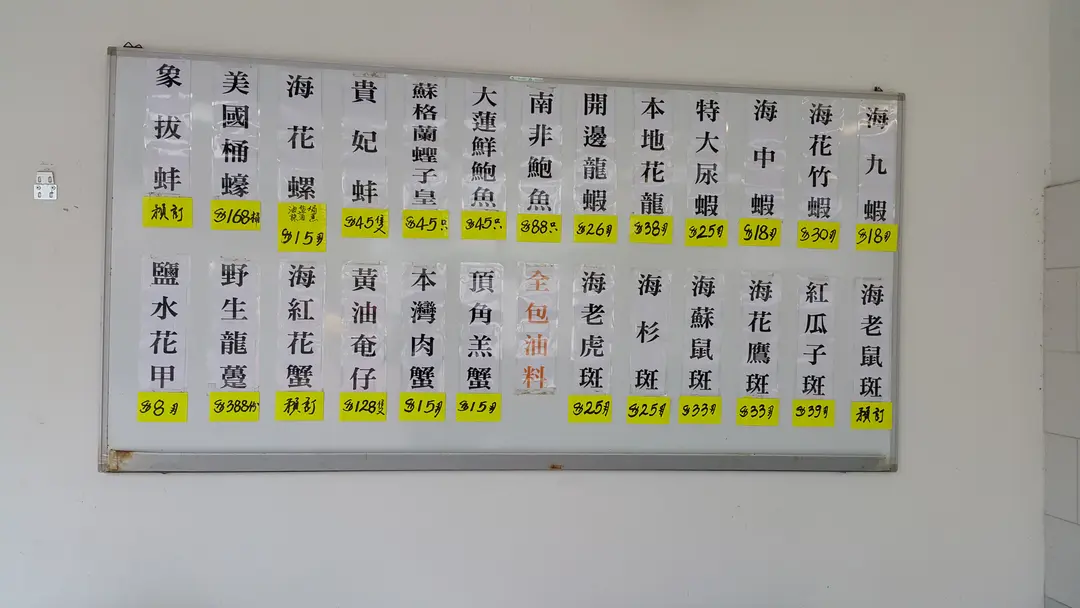 象拔蚌
預訂
美國桶蠔
$168桶
海花螺
$15両
貴妃蚌
$45隻
蘇格蘭蟶子皇
$45只
大蓮鮮鮑魚
$45只
南非鮑魚
$88只
開邊龍蝦
$26両
本地花龍
$38両
特大尿蝦
$25両
海中蝦
$18両
海花竹蝦
$30両
海九蝦
$18両
鹽水花甲
$8両
野生龍躉
$388份
海紅花蟹
預訂
黃油奄仔
$128隻
本灣肉蟹
$15両
頂角羔蟹
$15両
全包油料
海老虎斑
$25両
海杉斑
$25両
海蘇鼠斑
$33両
海花鷹斑
$33両
紅瓜子斑
$39両
海老鼠斑
預訂